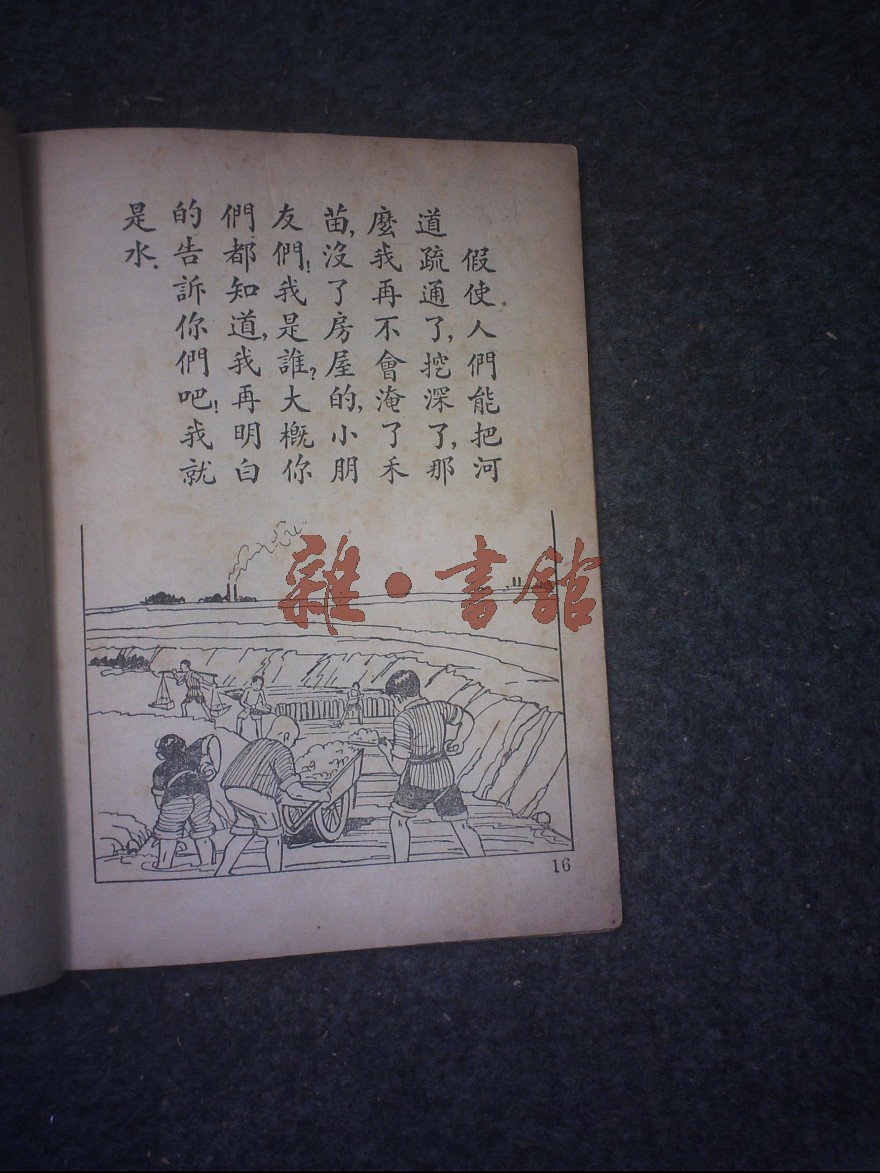 假使人們能把河
道疏通了,挖深了,那
麼我再不會淹了禾
苗,沒了房屋的,小朋
友們!我是誰?大概你
們都知道,我再明白
的告訴你們吧!我就
是水.
雜·書館
16